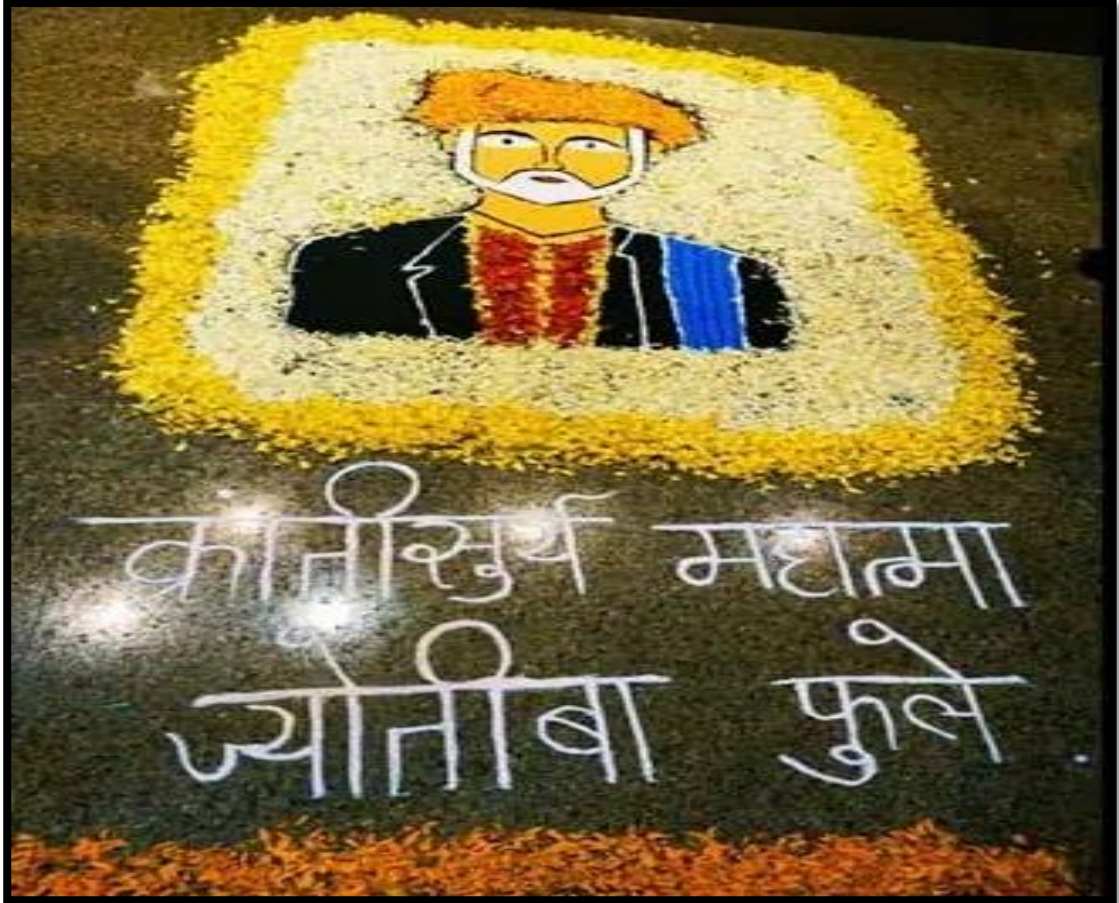 क्रातीसुर्य महात्मा
ज्योतीबा फुले.